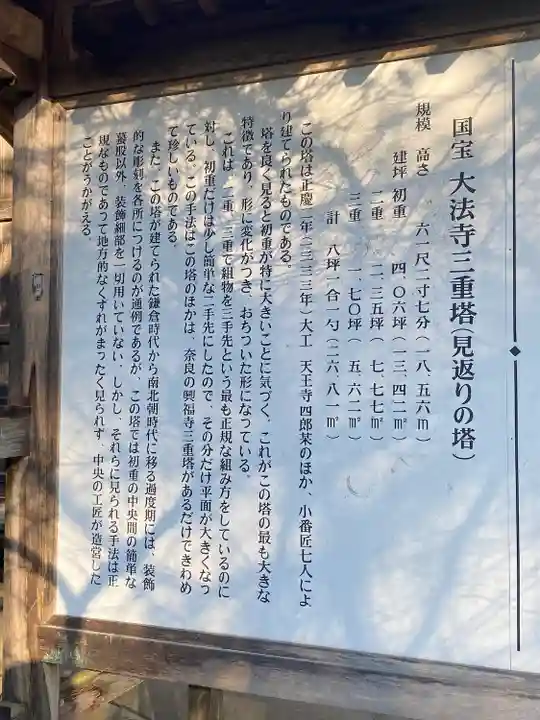 国宝 大法寺三重塔(見返りの塔)
規模 高さ 六一尺二寸七分(一八.五六m)
建坪 初重 四.〇六坪(一三.四二㎡)
二重 二.三五坪(七.七七㎡)
三重 一.七〇坪(五.六二㎡)
計 八坪一合一勺(二六.八一㎡)
この塔は正慶二年(一三三三年)大工 天王寺四郎某のほか、小番匠七人によ
り建てられたものである。
塔を良く見ると初重が特に大きいことに気づく。これがこの塔の最も大きな
特徴であり、形に変化がつき、おちついた形になっている。
これは、二重、三重で組物を三手先という最も正規な組み方をしているのに
対し、初重だけは少し簡単な二手先にしたので、その分だけ平面が大きくなっ
ている。この手法はこの塔のほかは、奈良の興福寺三重塔があるだけできわめ
て珍しいものである。
また、この塔が建てられた鎌倉時代から南北朝時代に移る過度期には、装飾
的な彫刻を各所につけるのが通例であるが、この塔では初重の中央間の簡単な
蟇股以外、装飾細部を一切用いていない。しかし、それらに見られる手法は正
規なものであって地方的なくずれがまったく見られず、中央の工匠が造営した
ことがうかがえる。